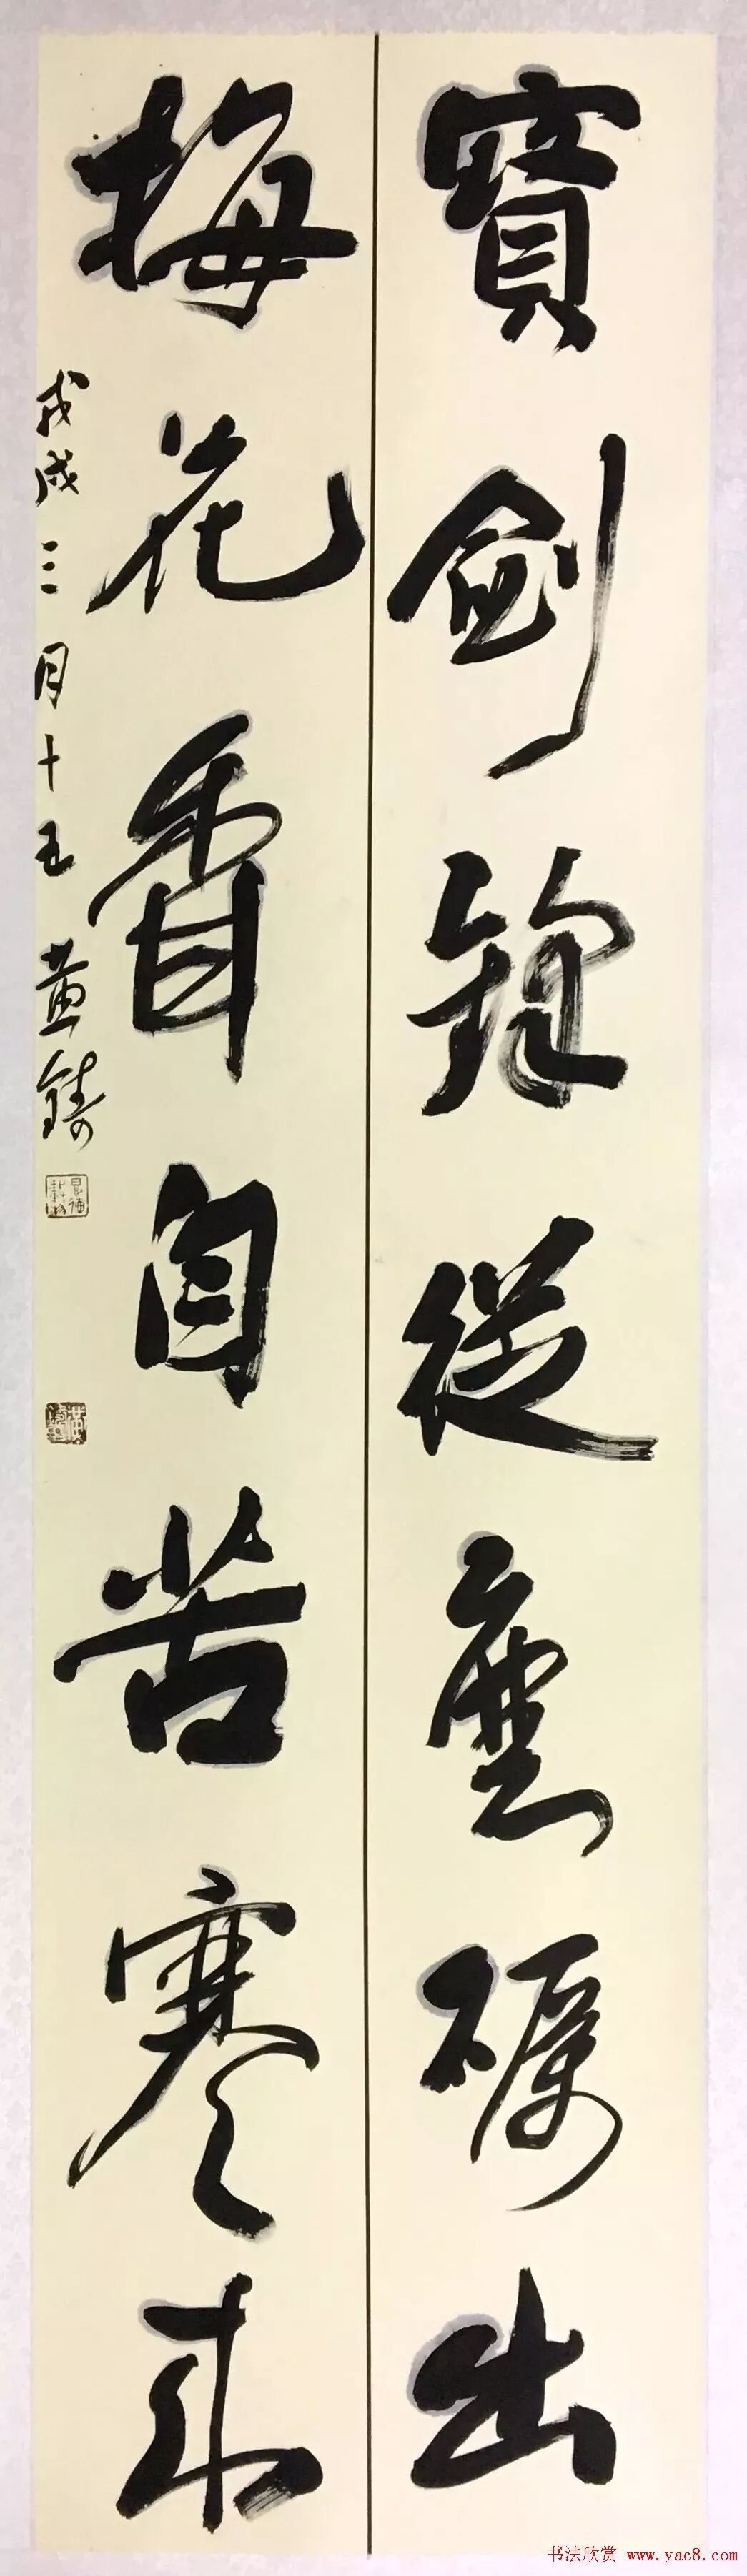 寶劍鋒從磨礪出
梅花香自苦寒來
戊戌三月十五黄鑄
书法欣赏 www.yac8.com